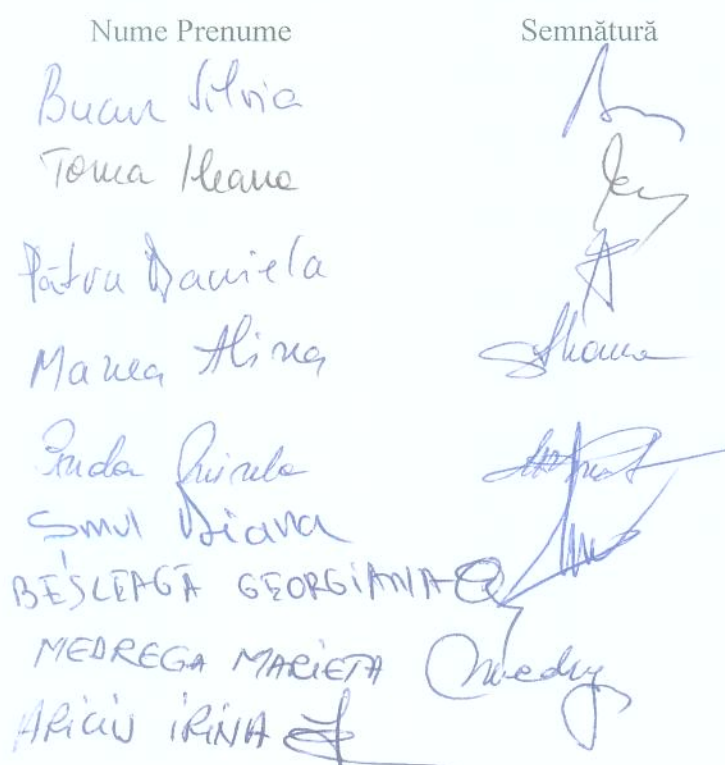 Nume Prenume Semnătură
Bucur Silvia
Toma Ileana
Pătru Daniela
Manea Alina
Mirela
Smul Diana
BEȘLEAGĂ GEORGIANA
MEDREGA MARIETA
ARICIU IRINA